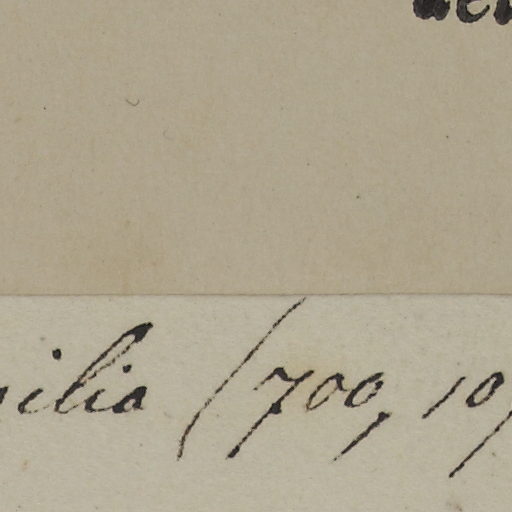 ilia (700, 10)